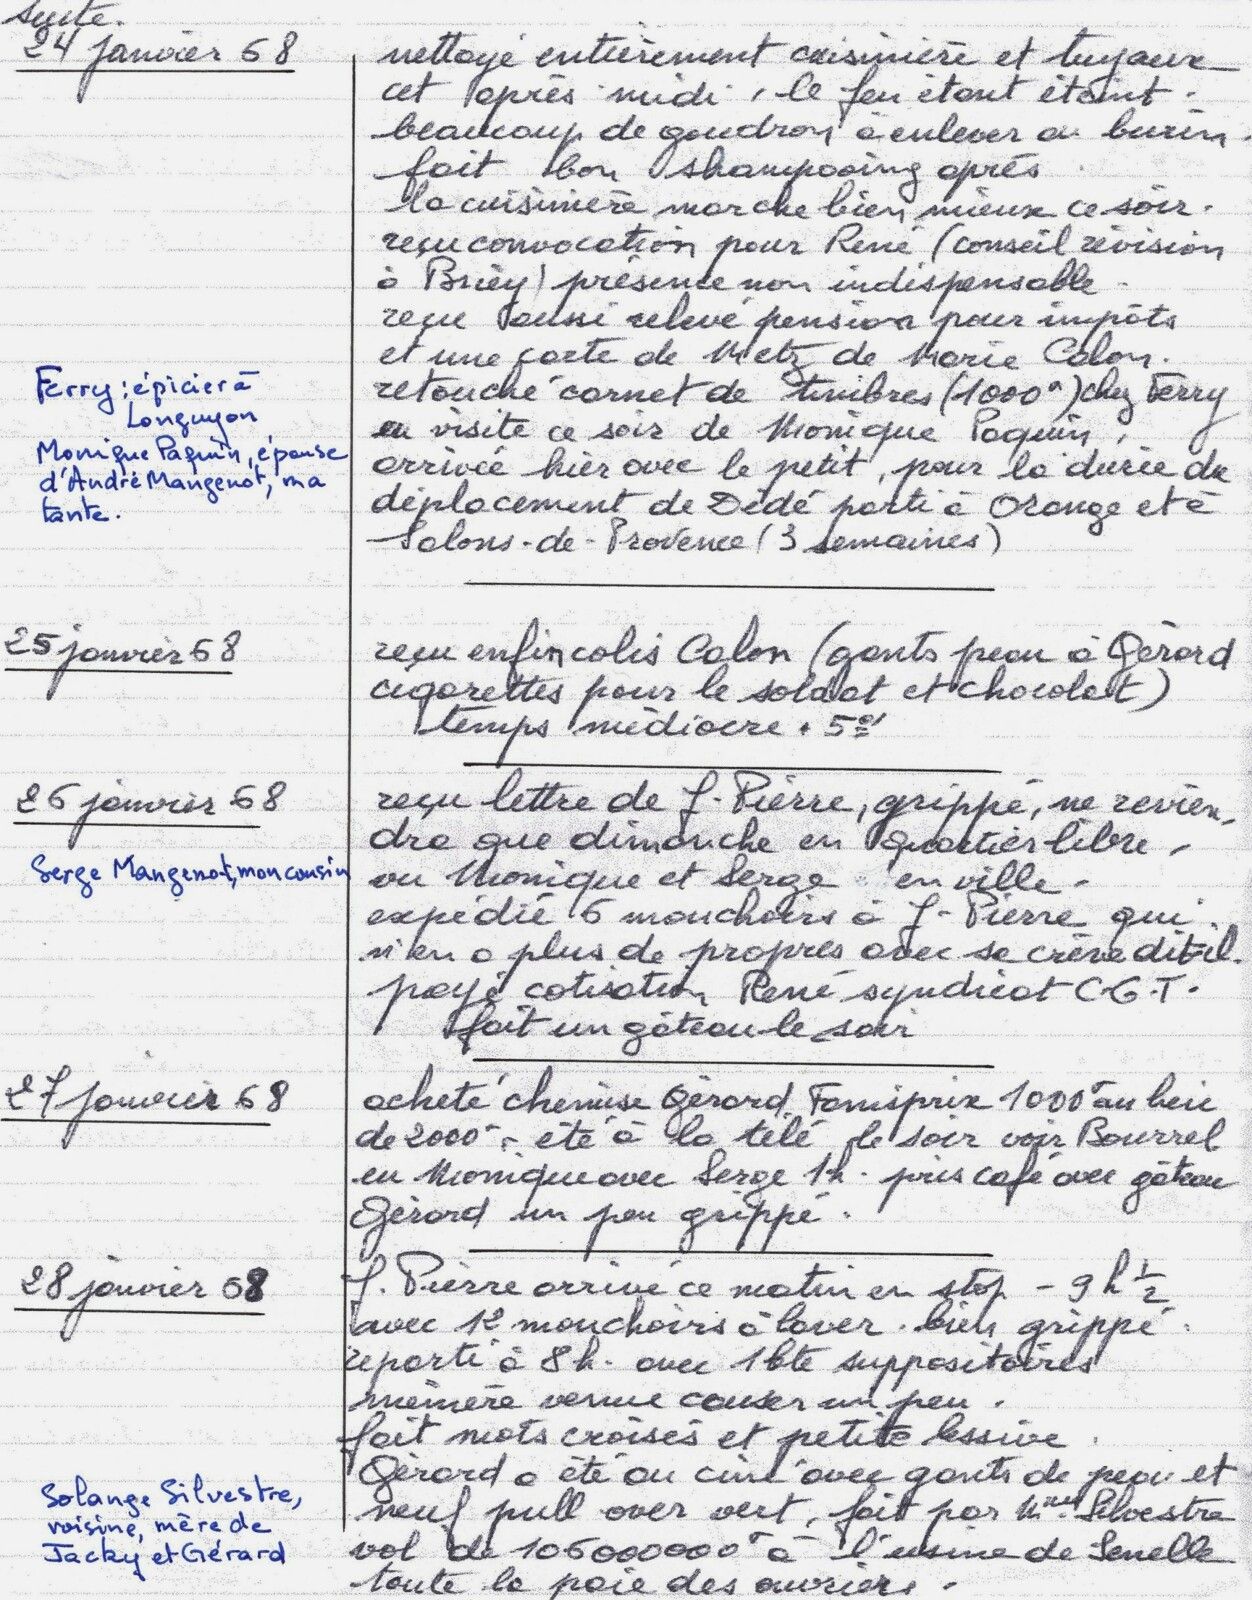 Suite.
24 janvier 68
nettoyé entièrement cuisinière et tuyaux
cet après-midi, le feu étant éteint.
beaucoup de goudron à enlever au burin.
fait bon shampooing après
la cuisinière marche bien mieux ce soir.
reçu convocation pour René (conseil révision
à Briey) présence non indispensable.
reçu aussi relevé pension pour impôts
et une carte de Metz de Marie Calon.
retouché carnet de timbres (1000F) chez Ferry
eu visite ce soir de Monique Paquin,
arrivée hier avec le petit, pour la durée du
déplacement de Dédé parti à Orange et à
Salons-de-Provence (3 semaines)
Ferry : épicier à
Longuyon
Monique Paquin, épouse
d'André Mangenot, ma
tante.
25 janvier 68
reçu enfin colis Calon (gants peau à Gérard
cigarettes pour le soldat et chocolat)
temps médiocre. 5°
26 janvier 68
reçu lettre de J-Pierre, grippé, ne revien-
dra que dimanche en quartier libre,
vu Monique et Serge en ville.
expédié 6 mouchoirs à J-Pierre qui
n'en a plus de propres avec sa crève dit-il.
payé cotisation René syndicat C.G.T.
fait un gâteau le soir
Serge Mangenot, mon cousin
27 janvier 68
acheté chemise Gérard Famisprix 1000F au lieu
de 2000F. été à la télé le soir voir Bourrel
eu Monique avec Serge 1h. pris café avec gâteau
Gérard un peu grippé.
28 janvier 68
J. Pierre arrivé ce matin en stop - 9 h 1/2
avec 12 mouchoirs à laver. bien grippé.
reparti à 8h. avec 1 bte suppositoires
mémère venue causer un peu.
fait mots croisés et petite lessive.
Gérard a été au ciné avec gants de peau et
neuf pull over vert, fait par Mme Silvestre
vol de 106000000F à l'usine de Senelle
toute la paie des ouvriers.
Solange Silvestre,
voisine, mère de
Jacky et Gérard